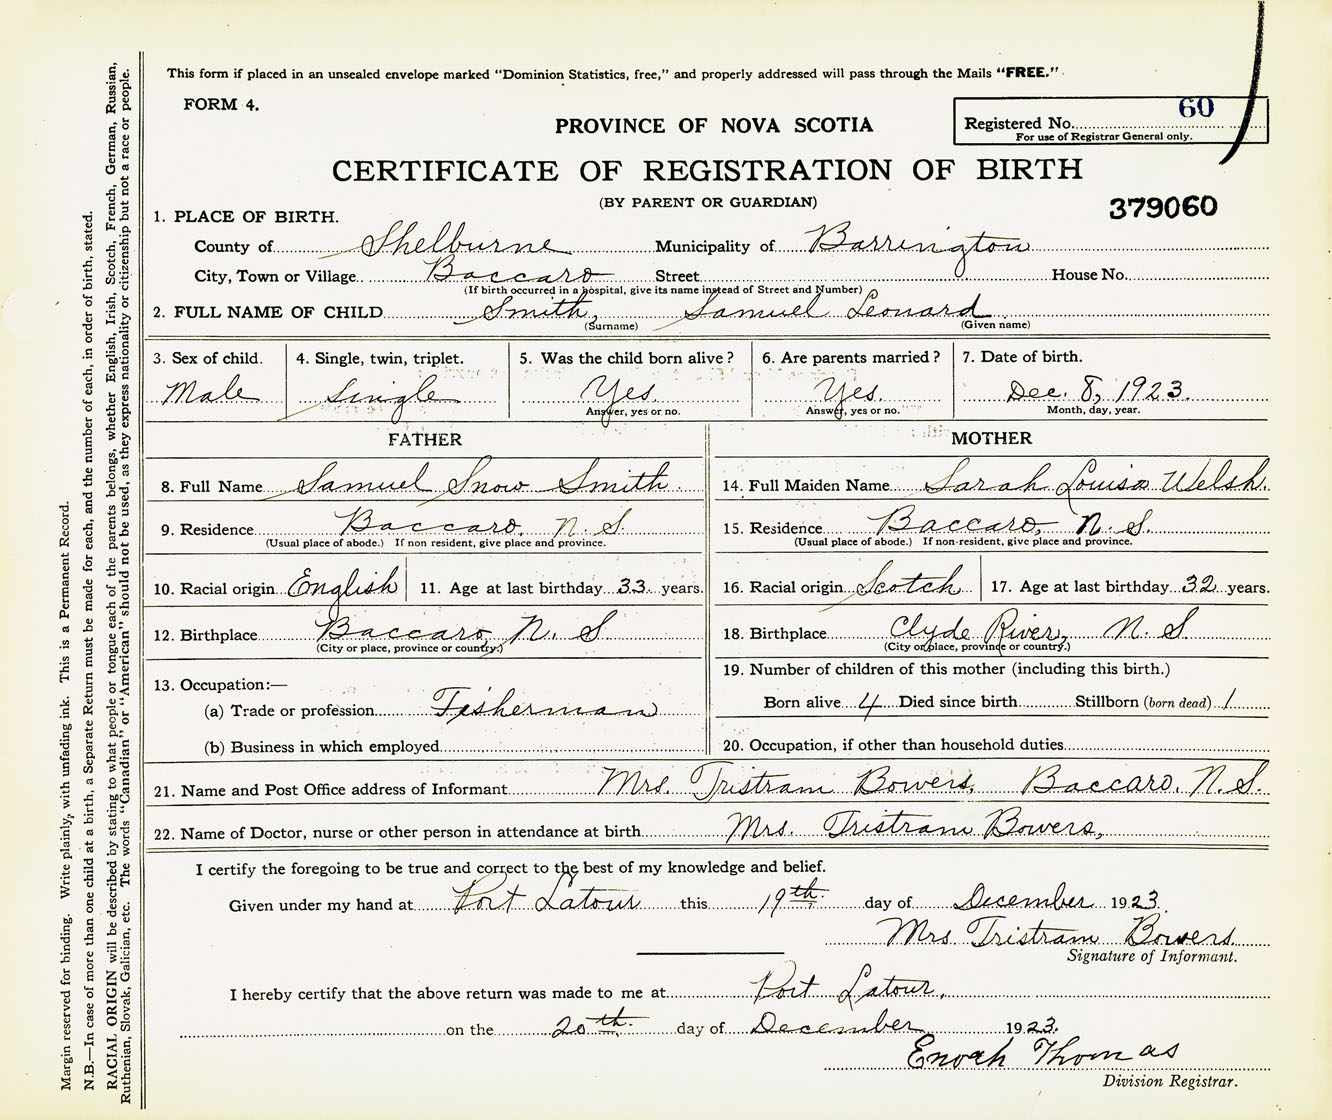 This form if placed in an unsealed envelope marked "Dominion Statistics, free," and properly addressed will pass through the Mails "FREE."
FORM 4.
60
Registered No.
For use of Registrar General only.
PROVINCE OF NOVA SCOTIA
CERTIFICATE OF REGISTRATION OF BIRTH
(BY PARENT OR GUARDIAN)
379060
1. PLACE OF BIRTH.
County of Shelburne Municipality of Barrington
City, Town or Village Baccaro Street House No.
(If birth occurred in a hospital, give its name instead of Street and Number)
2. FULL NAME OF CHILD Smith, Samuel Leonard
(Surname) (Given name)
3. Sex of child. 4. Single, twin, triplet. 5. Was the child born alive? 6. Are parents married? 7. Date of birth.
Male Single Yes Yes. Dec. 8, 1923.
Answer, yes or no. Answer, yes or no. Month, day, year.
FATHER MOTHER
8. Full Name Samuel Snow Smith 14. Full Maiden Name Sarah Louisa Welsh.
9. Residence Baccaro, N. S. 15. Residence Baccaro N. S.
(Usual place of abode.) If non resident, give place and province. (Usual place of abode.) If non-resident, give place and province.
10. Racial origin English 11. Age at last birthday 33 years. 16. Racial origin Scotch 17. Age at last birthday 32 years.
12. Birthplace Baccaro, N. S 18. Birthplace Clyde River, N. S
(City or place, province or country.) (City or place, province or country.)
13. Occupation:— 19. Number of children of this mother (including this birth.)
(a) Trade or profession Fisherman Born alive 4 Died since birth Stillborn (born dead) 1
(b) Business in which employed 20. Occupation, if other than household duties
21. Name and Post Office address of Informant Mrs. Tristram Bowers, Baccaro, N. S.
22. Name of Doctor, nurse or other person in attendance at birth Mrs. Tristram Bowers,
I certify the foregoing to be true and correct to the best of my knowledge and belief.
Given under my hand at Port Latour this 19th day of December 1923.
Mrs Tristram Bowers.
Signature of Informant.
I hereby certify that the above return was made to me at Port Latour,
on the 20th day of December 1923.
Enoch Thomas
Division Registrar.
Margin reserved for binding. Write plainly, with unfading ink. This is a Permanent Record.
N.B.—In case of more than one child at a birth, a Separate Return must be made for each, and the number of each, in order of birth, stated.
RACIAL ORIGIN will be described by stating to what people or tongue each of the parents belongs, whether English, Irish, Scotch, French, German, Russian,
Ruthenian, Slovak, Galician, etc. The words "Canadian" or "American" should not be used, as they express nationality or citizenship but not a race or people.